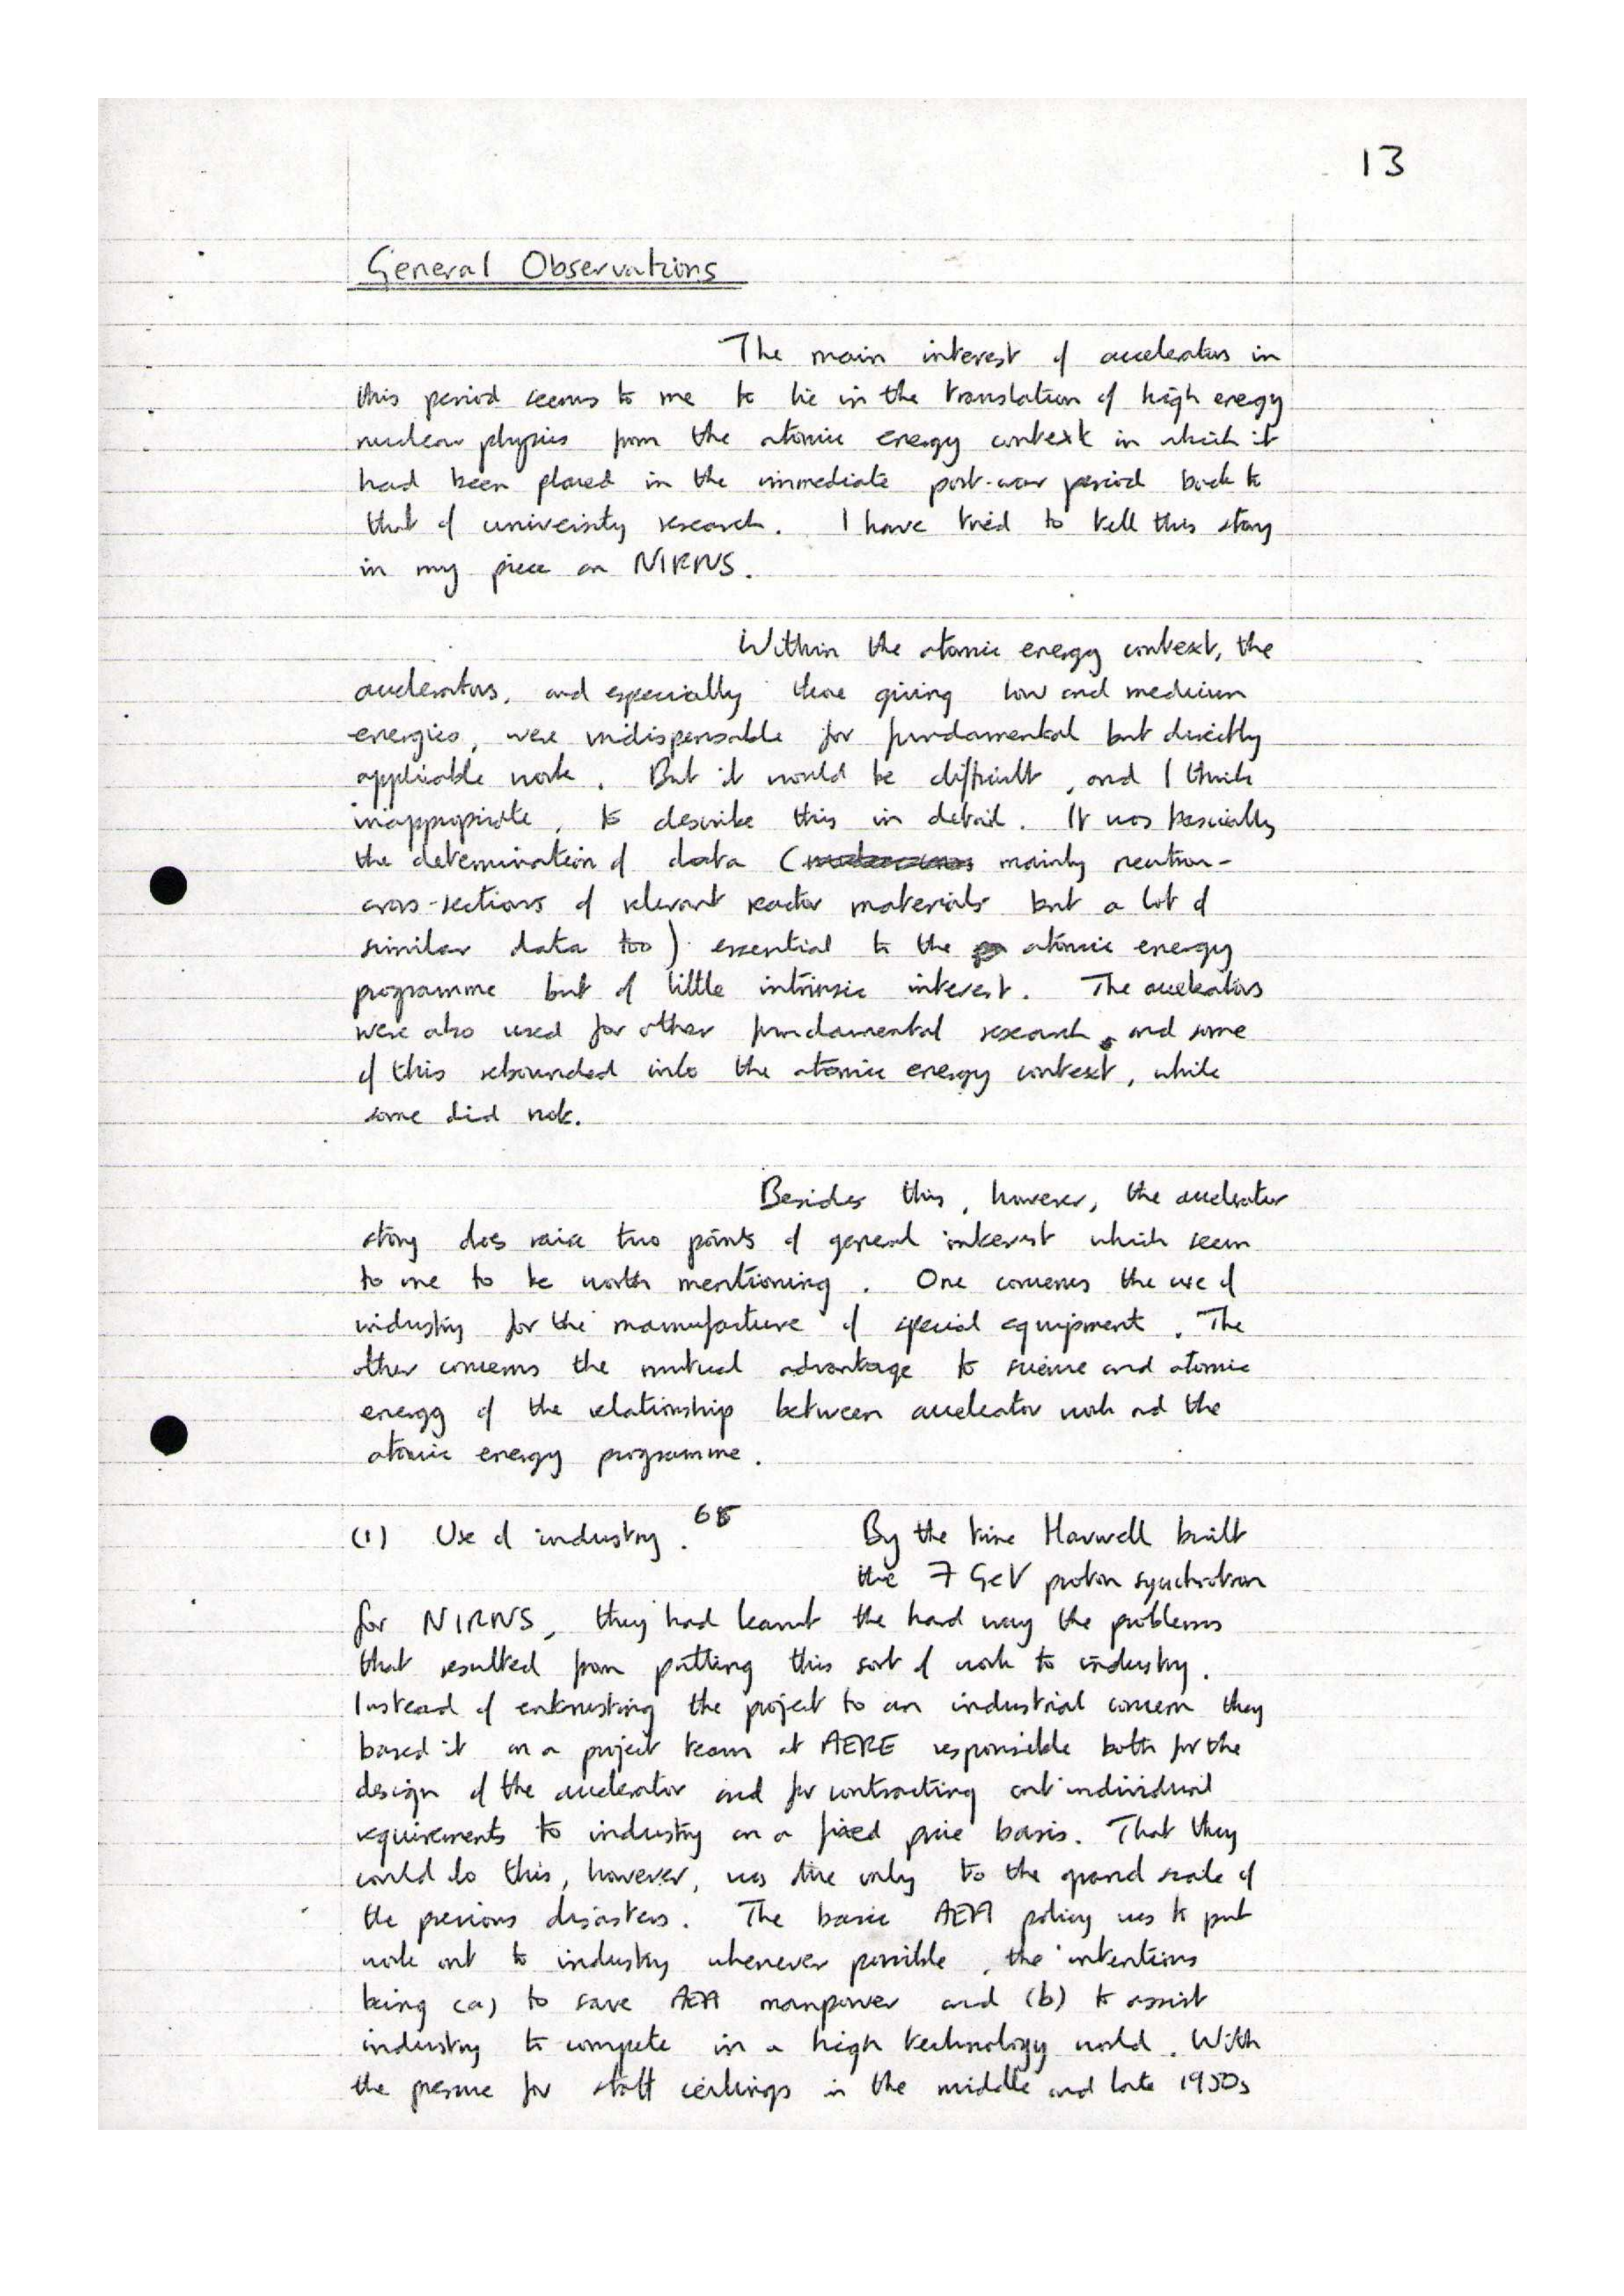 13
General Observations
The main interest of accelerators in
this period seems to me to lie in the translation of high energy
nuclear physics from the atomic energy context in which it
had been placed in the immediate post-war period back to
that of university research. I have tried to tell this story
in my piece on NIRNS.
Within the atomic energy context, the
accelerators, and especially those giving low and medium
energies, were indispensable for fundamental but directly
applicable work. But it would be difficult, and I think
inappropriate, to describe this in detail. It was basically
the determination of data ( mainly neutron-
cross-sections of relevant reactor materials but a lot of
similar data too) essential to the atomic energy
programme but of little intrinsic interest. The accelerators
were also used for other fundamental research, and some
of this rebounded into the atomic energy context, while
some did not.
Besides this, however, the accelerator
story does raise two points of general interest which seem
to me to be worth mentioning. One concerns the use of
industry for the manufacture of special equipment. The
other concerns the mutual advantage to science and atomic
energy of the relationship between accelerator work and the
atomic energy programme.
(1) Use of industry. By the time Harwell built
the 7 GeV proton synchrotron
for NIRNS, they had learnt the hard way the problems
that resulted from putting this sort of work to industry.
Instead of entrusting the project to an industrial concern they
based it on a project team at AERE responsible both for the
design of the accelerator and for contracting out individual
requirements to industry on a fixed price basis. That they
could do this, however, was due only to the grand scale of
the previous disasters. The basic AEA policy was to put
work out to industry whenever possible, the intentions
being (a) to save AEA manpower and (b) to assist
industry to compete in a high technology world. With
the pressure for staff ceilings in the middle and late 1950s